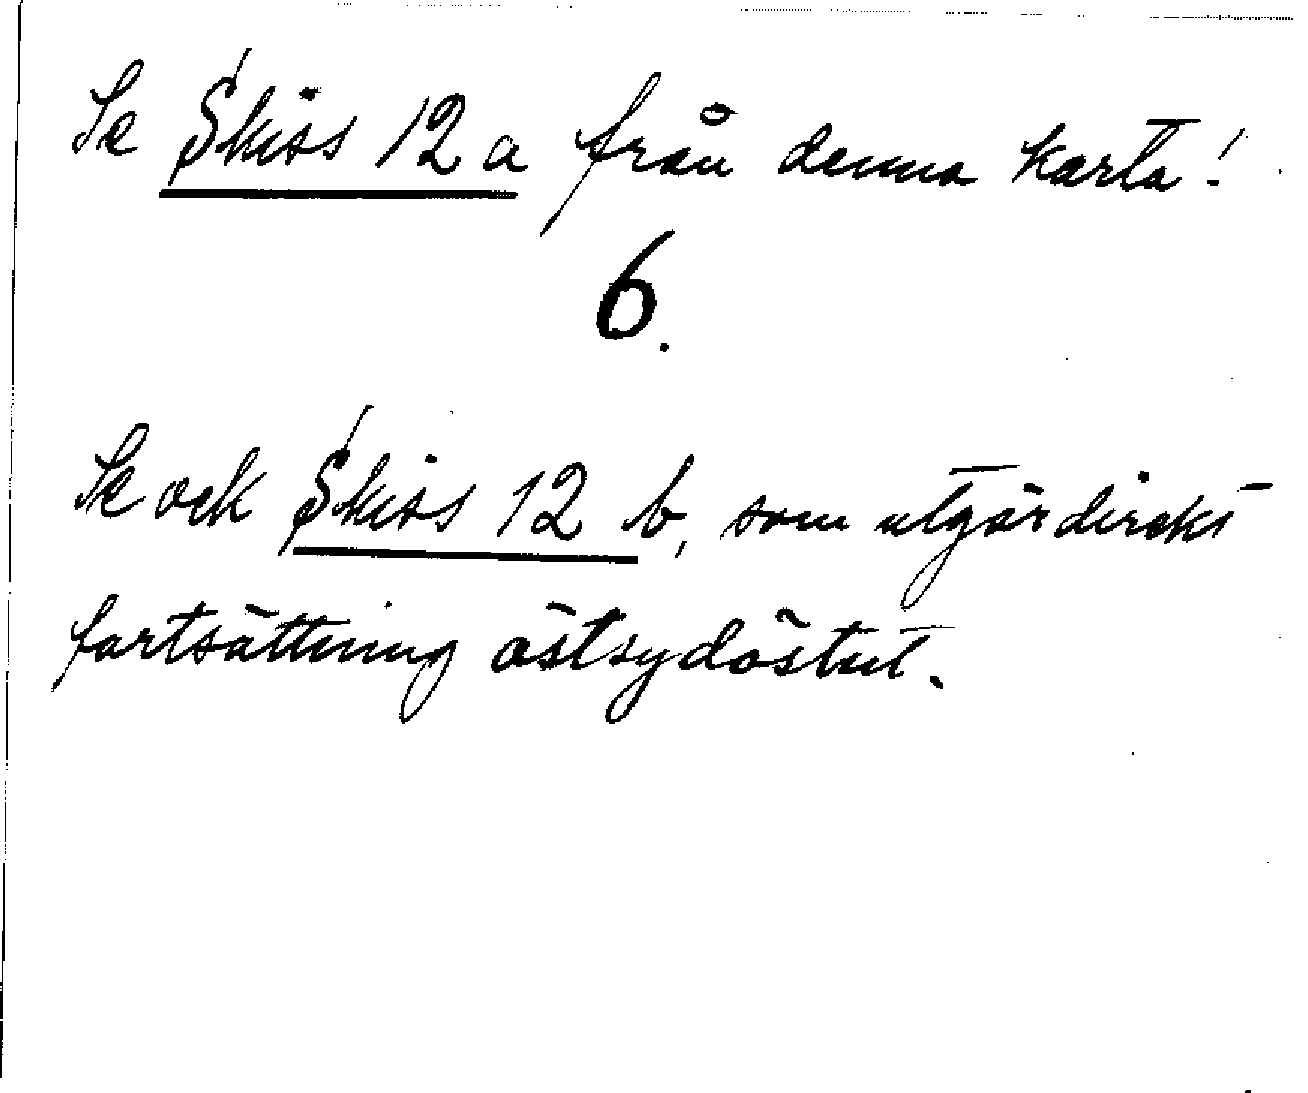 Se Skiss 12 a från denna karta!
6.
Se ock Skiss 12 b, som utgör direkt
fortsättning östsydöstut.